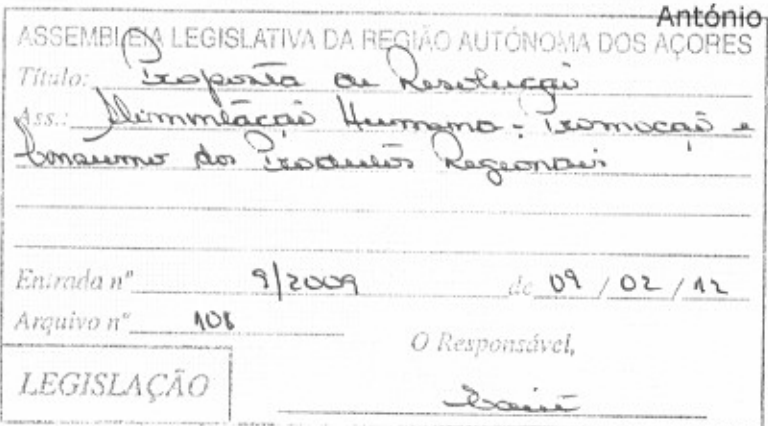 António
ASSEMBLEIA LEGISLATIVA DA REGIÃO AUTÓNOMA DOS AÇORES
Título: Proposta de Resolução
Ass.: Alimentação Humana - Promoção e
Consumo dos Produtos Regionais
Entrada nº 9/2009 de 09 / 02 / 12
Arquivo nº 108
O Responsável,
LEGISLAÇÃO